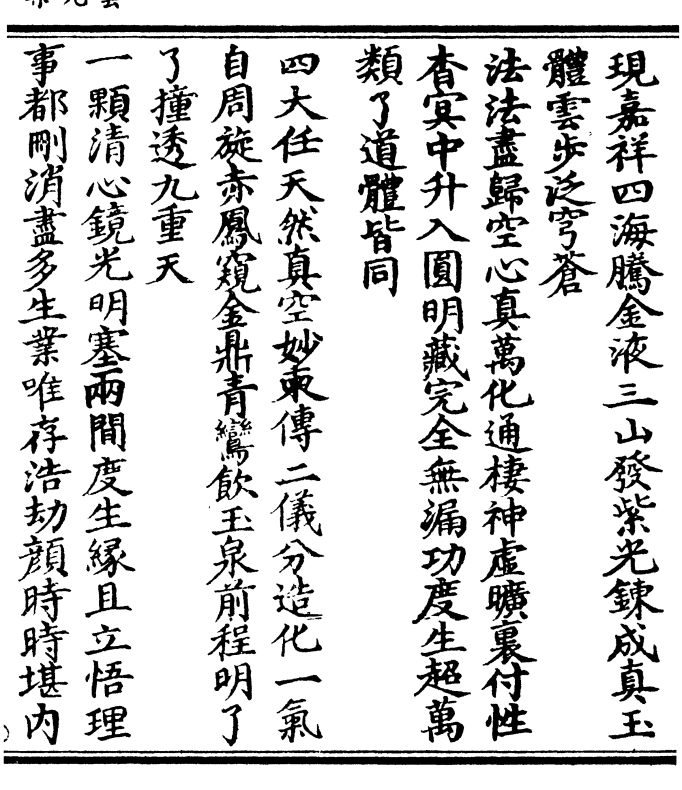 現嘉祥四海騰金液三山發紫光鍊成真玉
體雲步泛穹蒼
法法盡歸空心真萬化通棲神虛曠裏付性
杳冥中升入圓明藏完全無漏功度生超萬
類了道體皆同
四大任天然真空妙東傳二儀分造化一氣
自周旋赤鳳窺金鼎青鸞飲玉泉前程明了
了撞透九重天
一顆清心鏡光明塞兩間度生緣且立悟理
事都剛消盡多生業唯存浩劫顏時時堪内